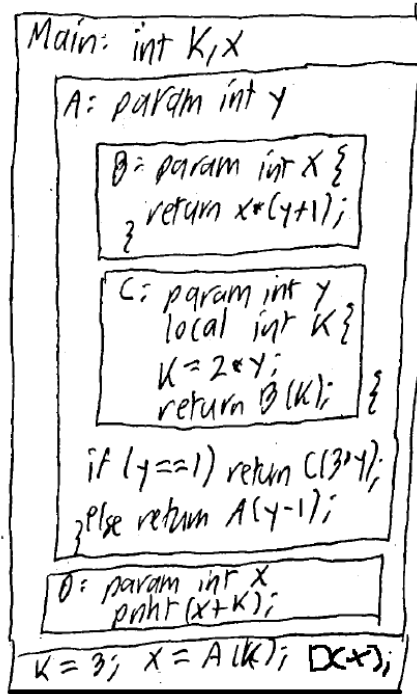 Main: int K, X
A: param int y
B: param int X {
return x*(y+1);
}
C: param int y
local int K {
K = 2*y;
return B(K); }
if (y==1) return C(3*y);
}else return A(y-1);
D: param int X
print(x+K);
K = 3; X = A(K); D(x);